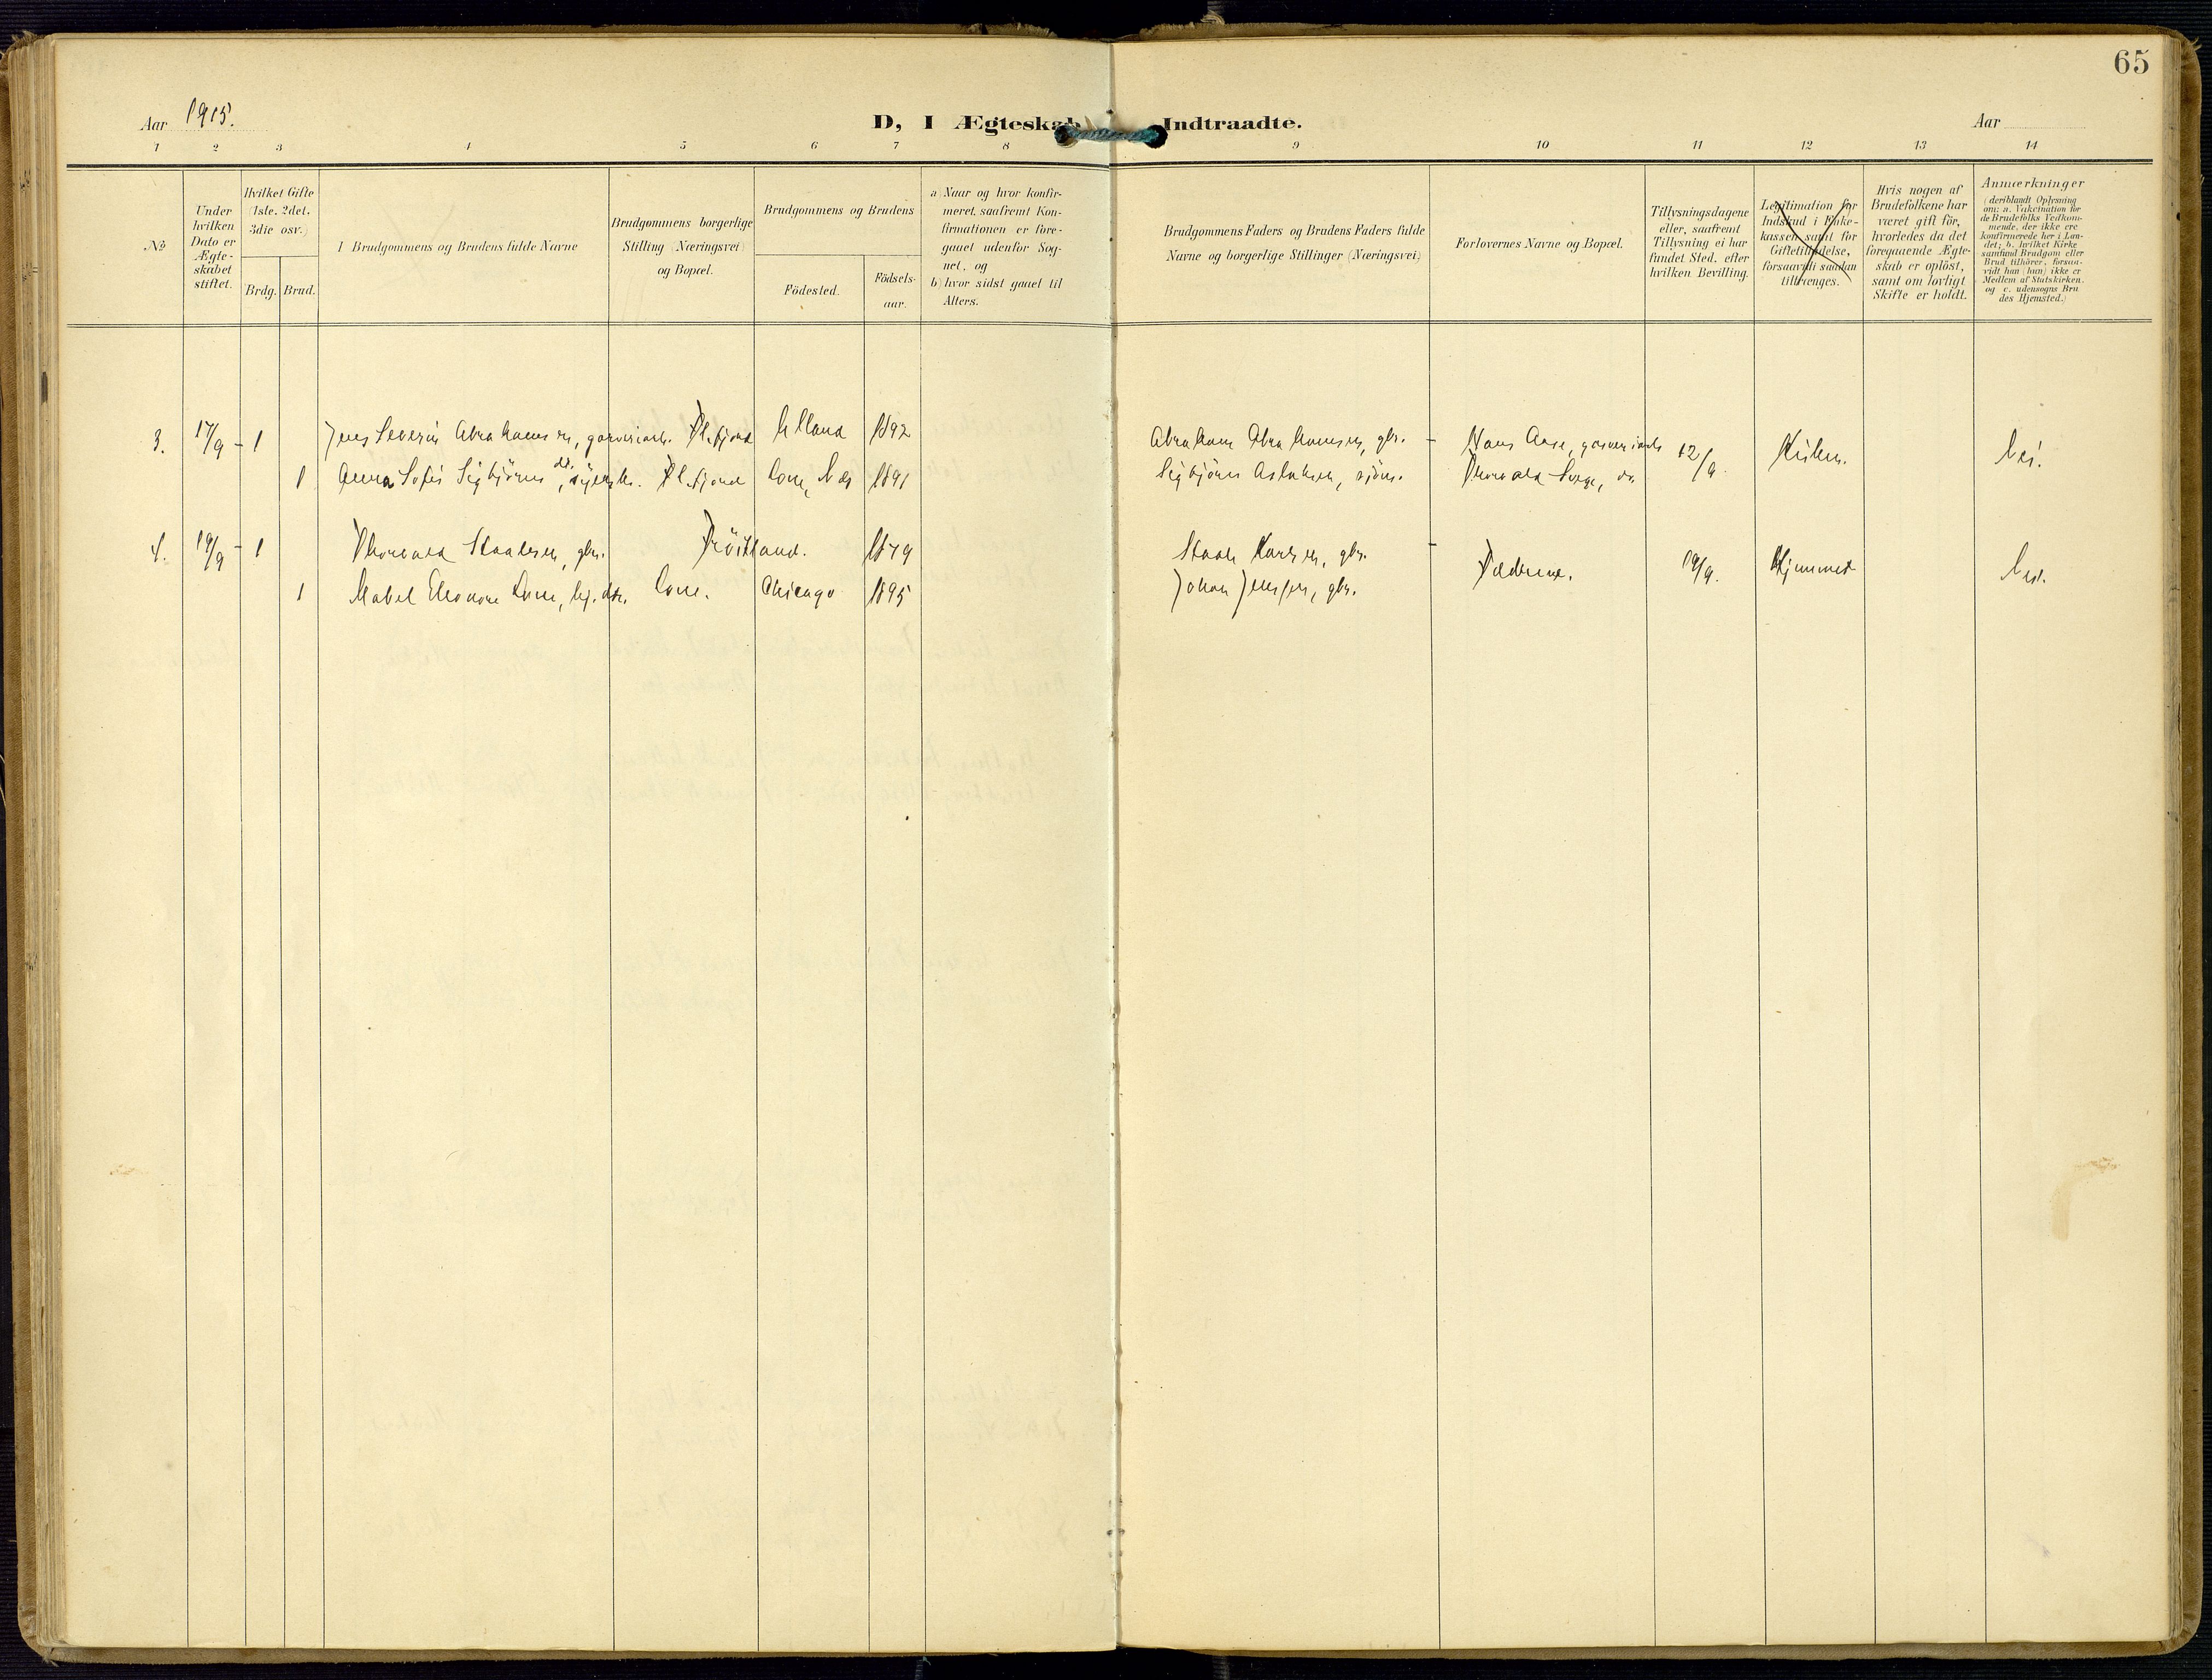 65
Aar 1915.
D, I Ægteskab Indtraadte.
Aar
1 2 3 4 5 6 7 8 9 10 11 12 13 14
No
Under
hvilken
Dato er
Ægte-
skabet
stiftet.
Hvilket Gifte
(1ste, 2det,
3die osv.)
Brdg. Brud.
I Brudgommens og Brudens fulde Navne
Brudgommens borgerlige
Stilling (Næringsvei)
og Bopæl.
Brudgommens og Brudens
Födested.
Födsels-
aar.
a) Naar og hvor konfir-
meret, saafremt Kon-
firmationen er fore-
gaaet udenfor Sog-
net, og
b) hvor sidst gaaet til
Alters.
Brudgommens Faders og Brudens Faders fulde
Navne og borgerlige Stillinger (Næringsvei)
Forlovernes Navne og Bopæl.
Tillysningsdagene
eller, saafremt
Tillysning ei har
fundet Sted, efter
hvilken Bevilling.
Legitimation for
Indskud i Enke-
kassen samt for
Giftetilladelse,
forsaavidt saadan
tiltrænges.
Hvis nogen af
Brudefolkene har
været gift för,
hvorledes da det
foregaaende Ægte-
skab er oplöst,
samt om lovligt
Skifte er holdt.
Anmærkninger
(deriblandt Oplysning
om: a. Vakcination for
de Brudefolks Vedkom-
mende, der ikke ere
konfirmerede her i Lan-
det; b. hvilket Kirke
samfund Brudgom eller
Brud tilhörer, forsaa-
vidt han (hun) ikke er
Medlem af Statskirken,
og c. udensogns Bru
des Hjemsted.)
3. 17/9 - 1 Jens Severin Abrahamsen, garveriarb. Fl.fjord 1892 Abraham Abrahamsen, gbr. - Hans Aase, garveriarb 12/9. Kirken. Nei.
1 Anna Sofie Sigbjörns dt. Fl.fjord 1891 Sigbjörn Aslaksen, sjöm. Thorvald
4. 19/9 - 1 Thorvald Staalesen, gbr. Tröitland. 1879 Staale Karlsen, gbr. - Fædrene. 19/9. Hjemmet Nei.
1 Mabel Eleonore Lone, hj. dtr. Lone. Chicago 1895 Johan Jensen, gbr.